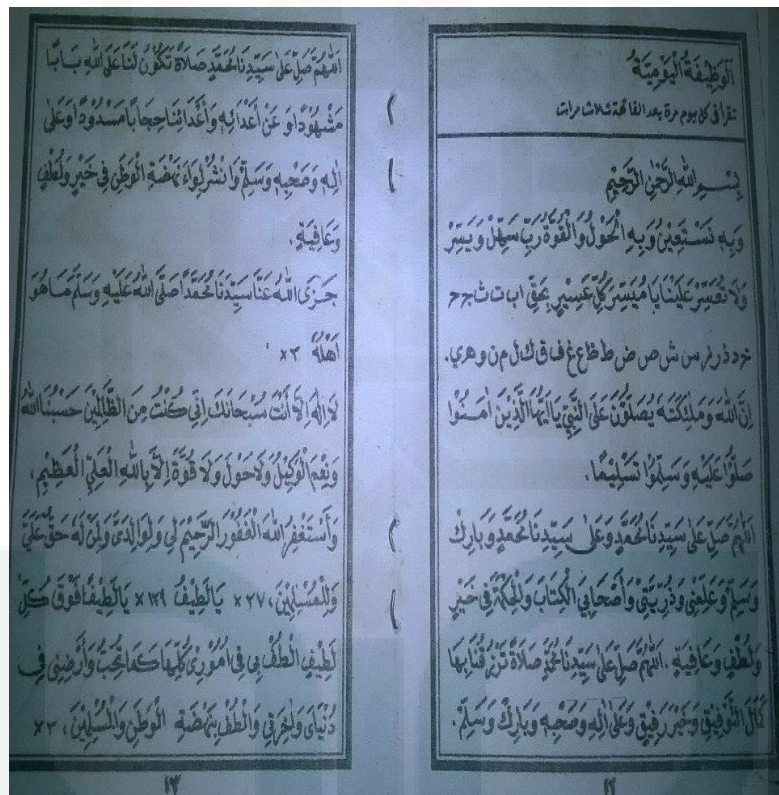 اَلْوَظِيْفَةُ الْيَوْمِيَّةُ
تقرأ فى كل يوم مرة بعد الفاتحة ثلاث مرات
بِسْمِ اللهِ الرَّحْمٰنِ الرَّحِيْمِ
وَبِهِ نَسْتَعِيْنُ وَبِهِ الْحَوْلُ وَالْقُوَّةُ رَبِّ سَهِّلْ وَيَسِّرْ
وَلَا تُعَسِّرْ عَلَيْنَا يَا مُيَسِّرَ كُلِّ عَسِيْرٍ بِحَقِّ اب ت ث ج ح
خ د ذ ر ز س ش ص ض ط ظ ع غ ف ق ك ل م ن و ه ي.
اِنَّ اللهَ وَمَلٰئِكَتَهُ يُصَلُّوْنَ عَلَى النَّبِيِّ يَااَيُّهَا الَّذِيْنَ اٰمَنُوْا
صَلُّوْا عَلَيْهِ وَسَلِّمُوْا تَسْلِيْمًا.
اَللّٰهُمَّ صَلِّ عَلٰى سَيِّدِنَا مُحَمَّدٍ وَعَلٰى سَيِّدِنَا مُحَمَّدٍ وَبَارِكْ
وَسَلِّمْ وَعَلِّمْنِى وَذُرِّيَّتِىْ وَأَصْحَابِيَ الْكِتَابَ وَالْحِكْمَةَ فِى خَيْرٍ
وَلُطْفٍ وَعَافِيَةٍ. اَللّٰهُمَّ صَلِّ عَلٰى سَيِّدِنَا مُحَمَّدٍ صَلَاةً تَرْزُقُنَا بِهَا
كَمَالَ التَّوْفِيْقِ وَخَيْرَ رَفِيْقٍ وَعَلٰى اٰلِهِ وَصَحْبِهِ وَبَارِكْ وَسَلِّمْ.
١٢
اَللّٰهُمَّ صَلِّ عَلٰى سَيِّدِنَا مُحَمَّدٍ صَلَاةً تَكُوْنُ لَنَا عَلَى اللهِ بَابًا
مَشْهُوْدًا وَ عَنْ أَعْدَائِهِ وَأَعْدَائِنَا حِجَابًا مَسْدُوْدًا وَعَلٰى
اٰلِهِ وَصَحْبِهِ وَسَلِّمْ وَانْشُرْ لِوَاءَ نَهْضَةِ الْوَطَنِ فِى خَيْرٍ وَلُطْفٍ
وَعَافِيَةٍ.
جَزَى اللهُ عَنَّا سَيِّدَنَا مُحَمَّدًا صَلَّى اللهُ عَلَيْهِ وَسَلَّمَ مَا هُوَ
اَهْلُهُ ×٣
لَا اِلٰهَ اِلَّا أَنْتَ سُبْحَانَكَ اِنِّى كُنْتُ مِنَ الظَّالِمِيْنَ حَسْبُنَا اللهُ
وَنِعْمَ الْوَكِيْلُ وَلَا حَوْلَ وَلَا قُوَّةَ اِلَّا بِاللهِ الْعَلِيِّ الْعَظِيْمِ،
وَأَسْتَغْفِرُ اللهَ الْغَفُوْرَ الرَّحِيْمَ لِى وَلِوَالِدَيَّ وَلِمَنْ لَهُ حَقٌّ عَلَيَّ
وَلِلْمُسْلِمِيْنَ، ×٢٧ يَالَطِيْفُ ×١٢٩ يَالَطِيْفًا فَوْقَ كُلِّ
لَطِيْفٍ اُلْطُفْ بِى فِى اُمُوْرِىْ كُلِّهَا كَمَا تُحِبُّ وَأَرْضِنِى فِى
دُنْيَاىَ وَاٰخِرَتِى وَالْطُفْ بِنَهْضَةِ الْوَطَنِ وَالْمُسْلِمِيْنَ، ×٣
١٣